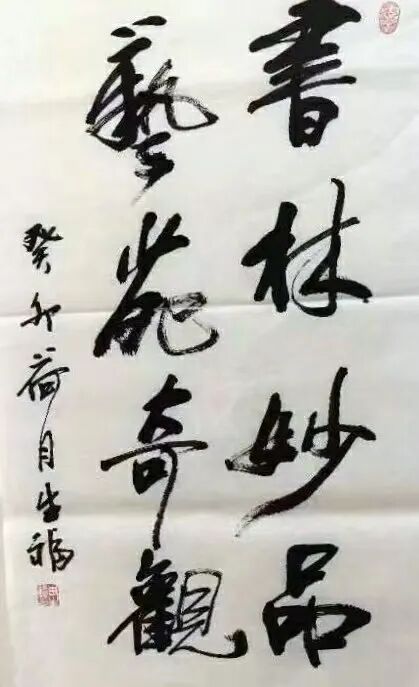 書林妙品
藝苑奇觀
癸卯荷月生福